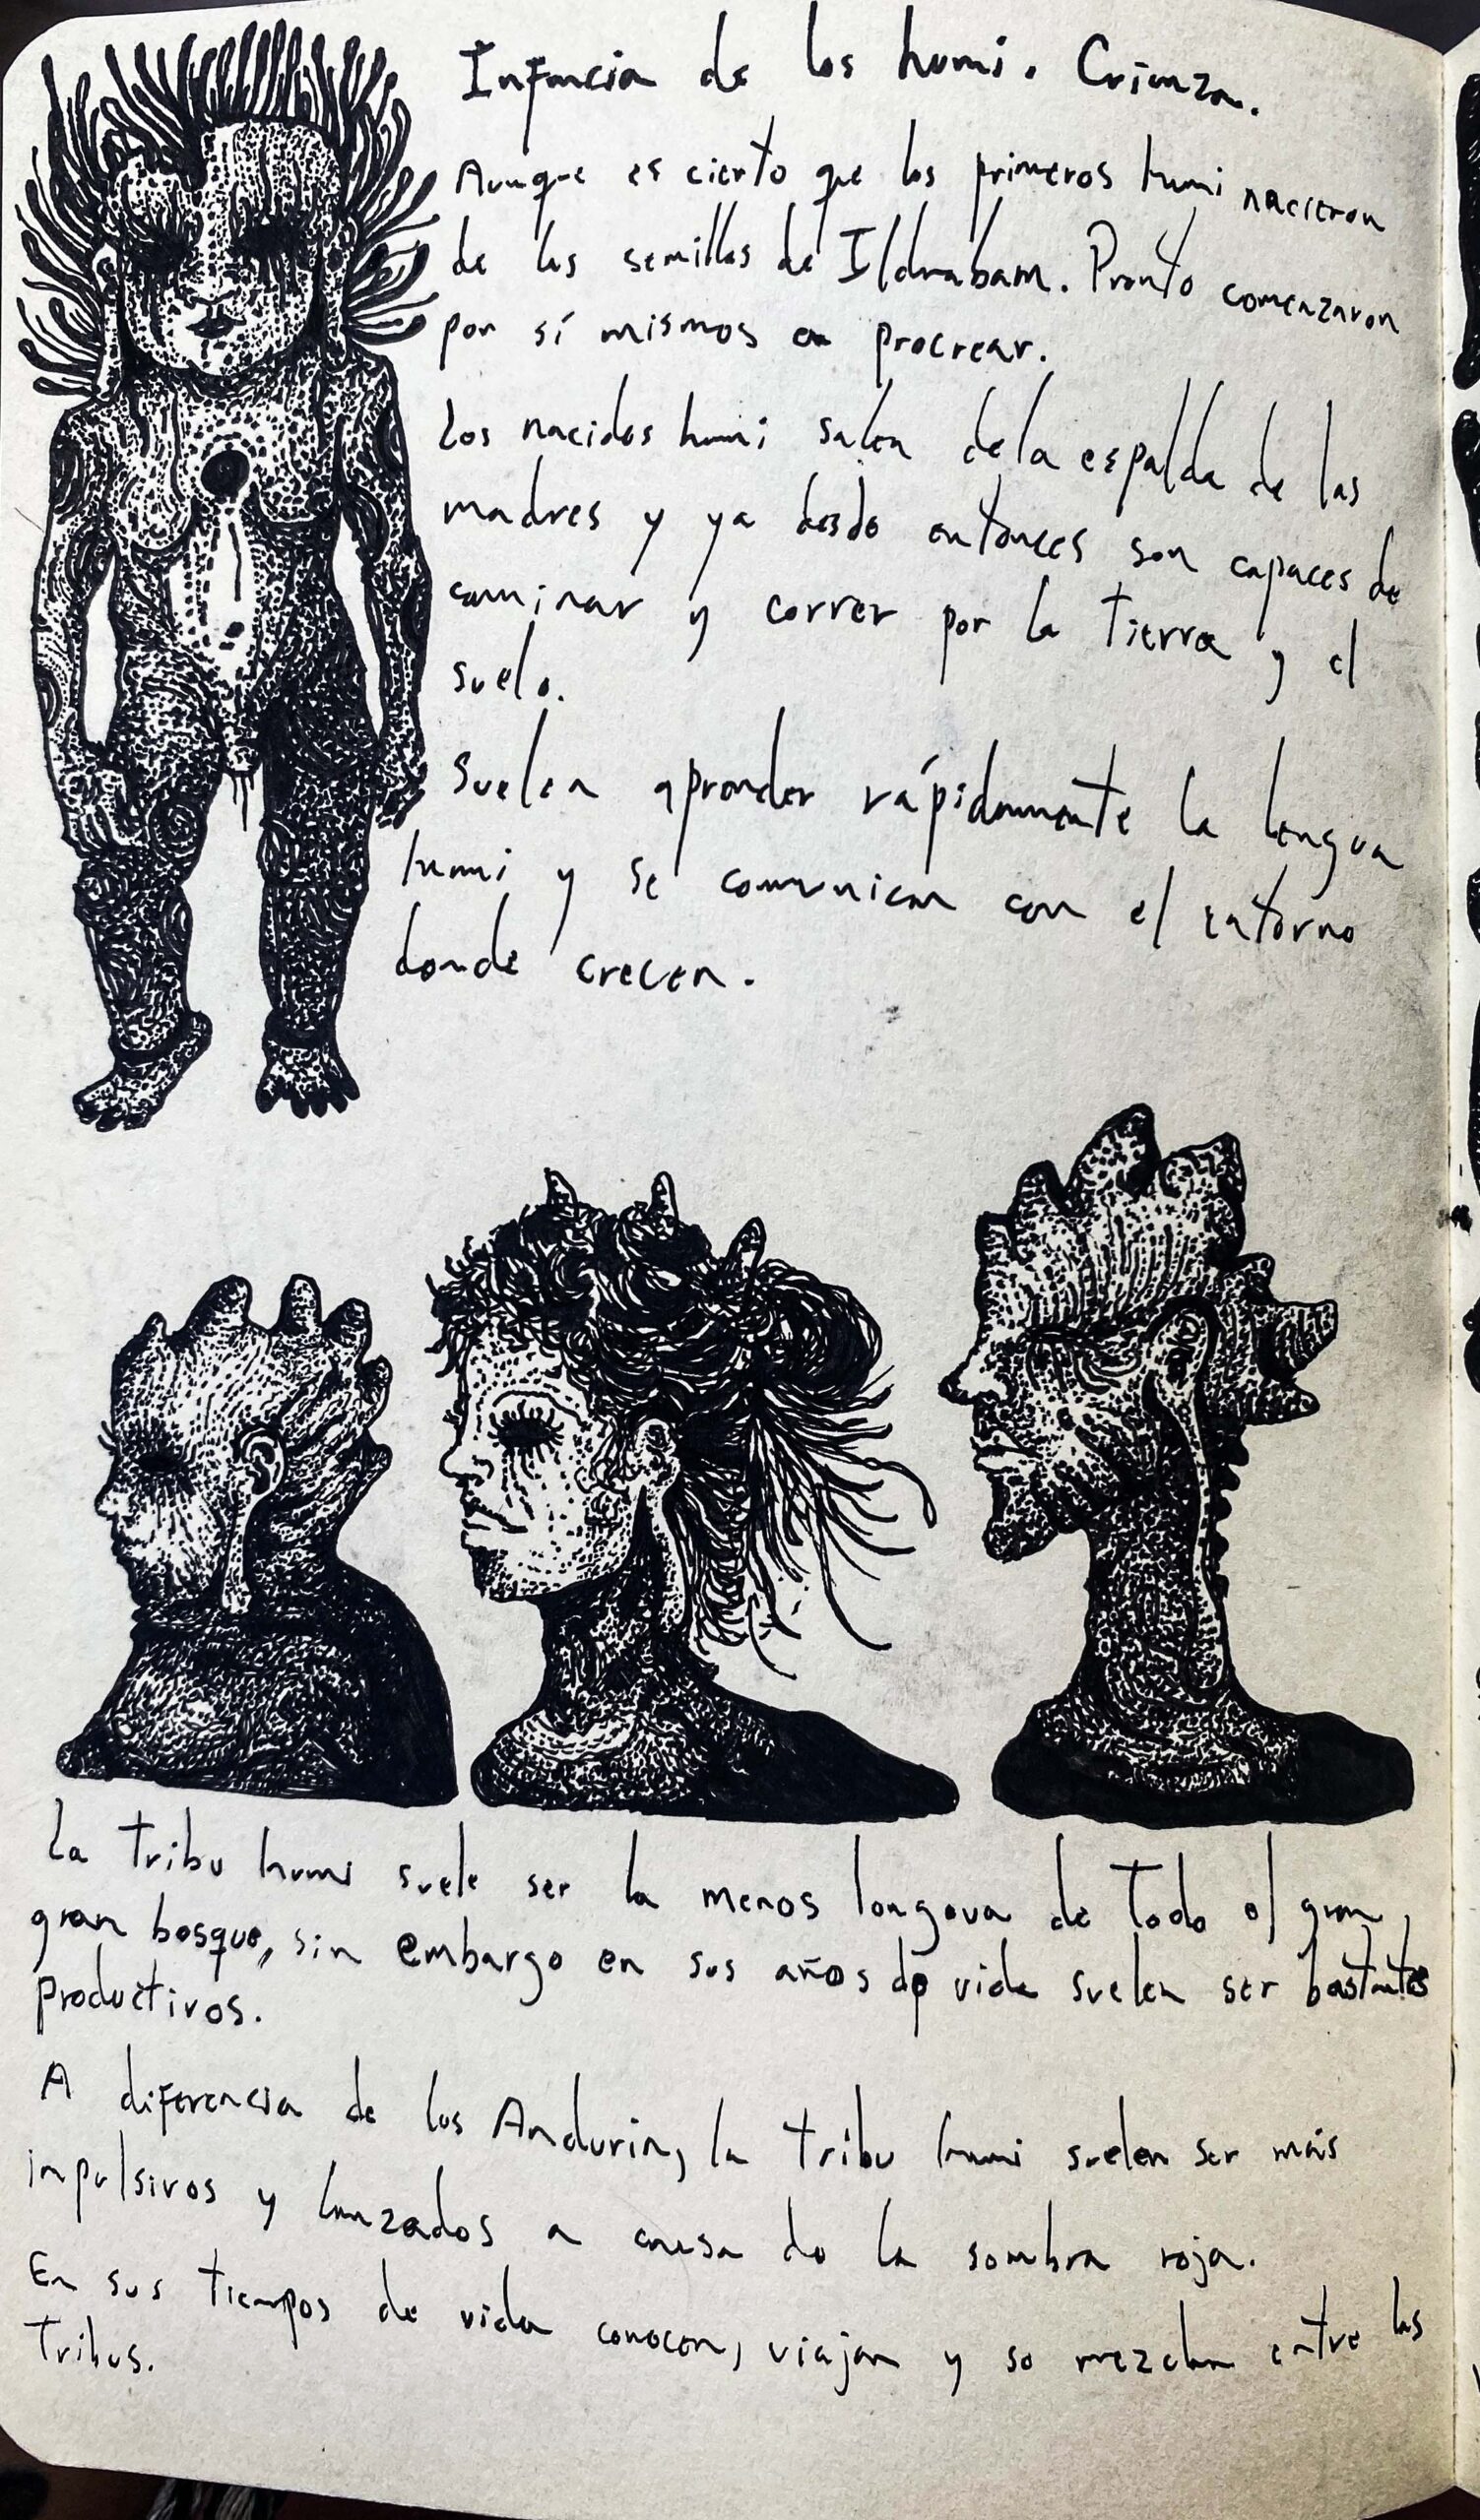 Infancia de los humi. Crianza.
Aunque es cierto que los primeros humi nacieron
de las semillas de Ildrabam. Pronto comenzaron
por sí mismos a procrear.
Los nacidos humi salen de la espalda de las
madres y ya desde entonces son capaces de
caminar y correr por la tierra y el
suelo.
Suelen aprender rápidamente la lengua
humi y se comunican con el entorno
donde crecen.
La tribu humi suele ser la menos longeva de todo el gran
gran bosque, sin embargo en sus años de vida suelen ser bastantes
productivos.
A diferencia de los Andurin, la tribu humi suelen ser más
impulsivos y lanzados a causa de la sombra roja.
En sus tiempos de vida conocen, viajan y se mezclan entre las
tribus.